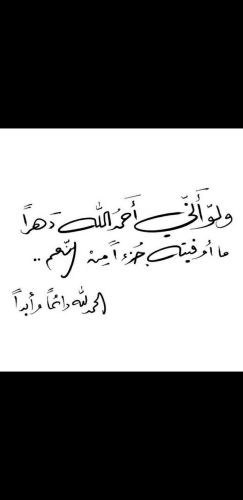 ولَو أَنّي أَحمدُ الله دَهراً
ما أوفيته جُزءاً مِنْ نِّعم ..
الحمدلله دائماً وأبداً